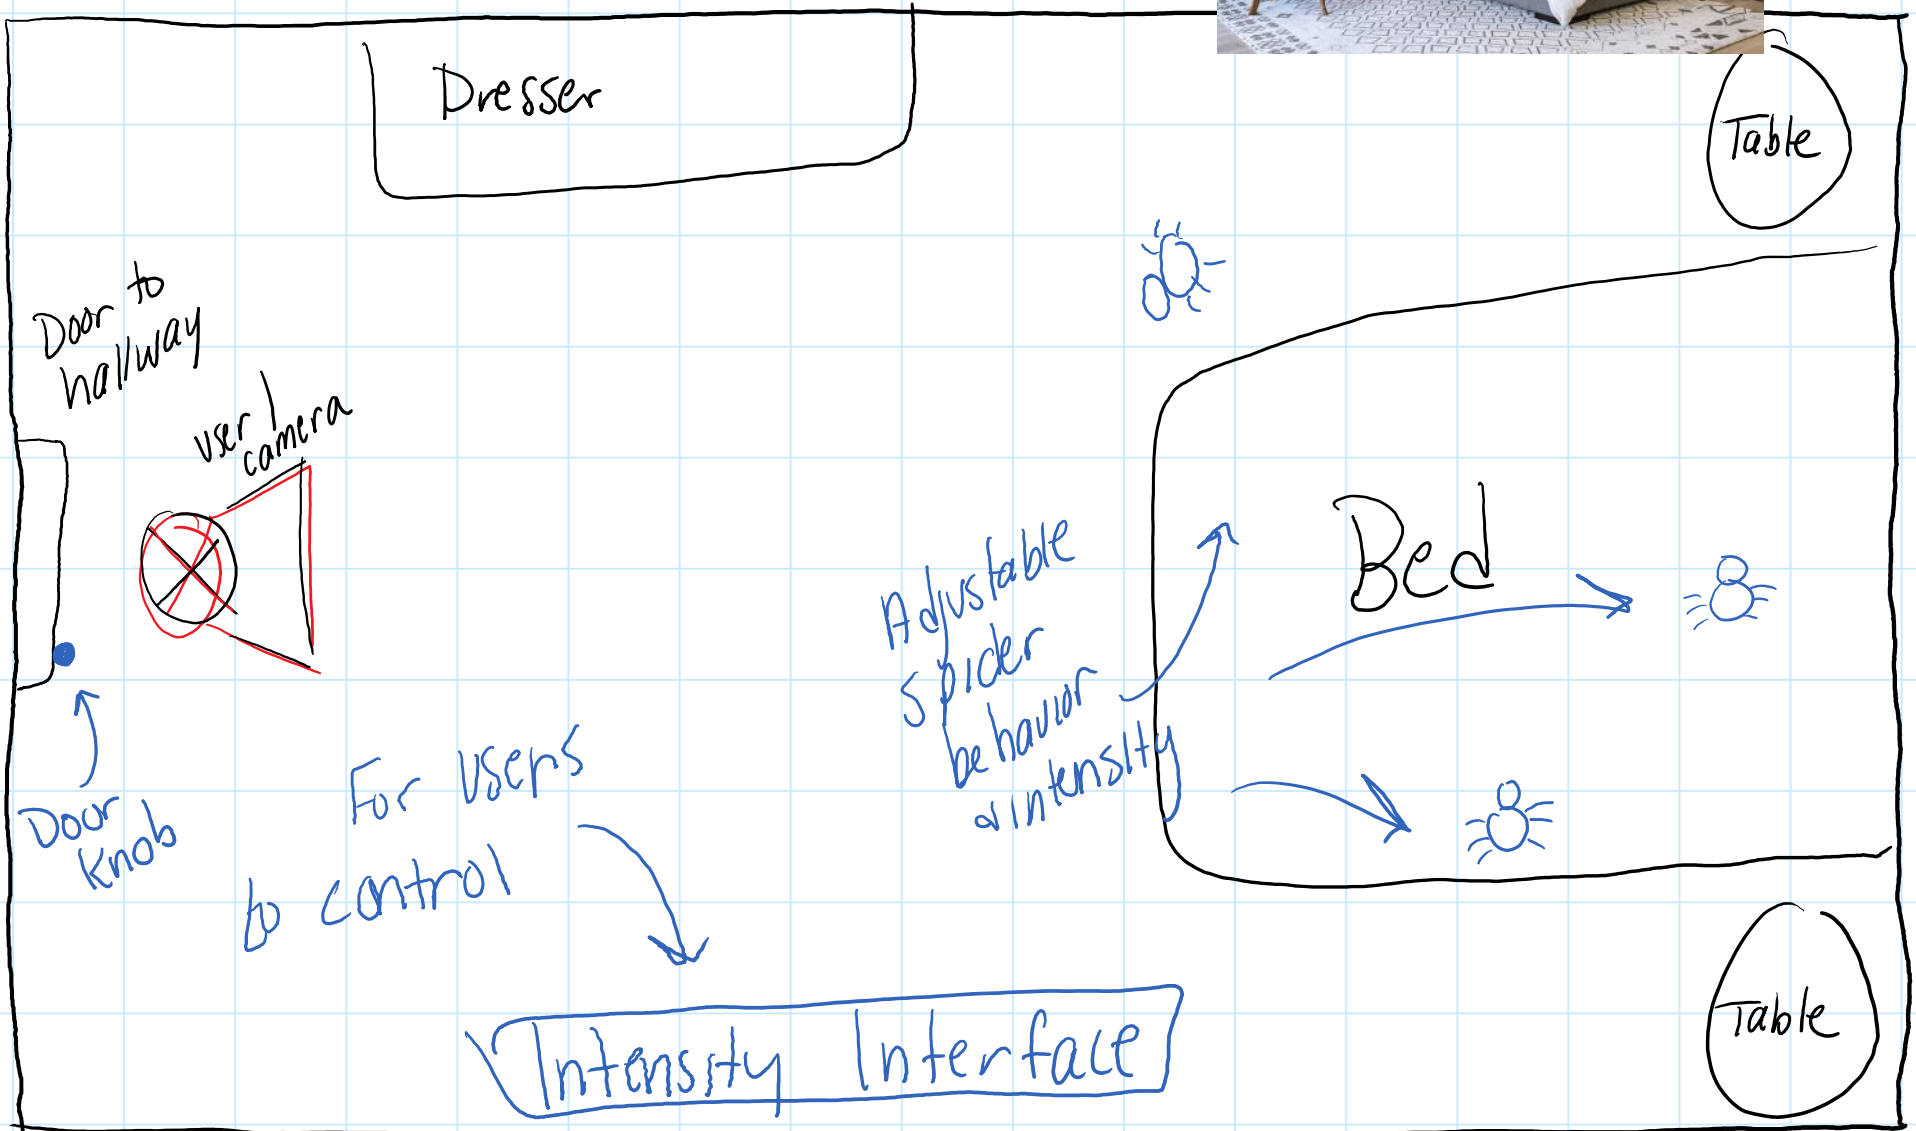 Dresser
Table
Door to
hallway
user /
camera
Bed
Adjustable
spider
behavior
& intensity
Door
Knob
For users
to control
Intensity Interface
Table